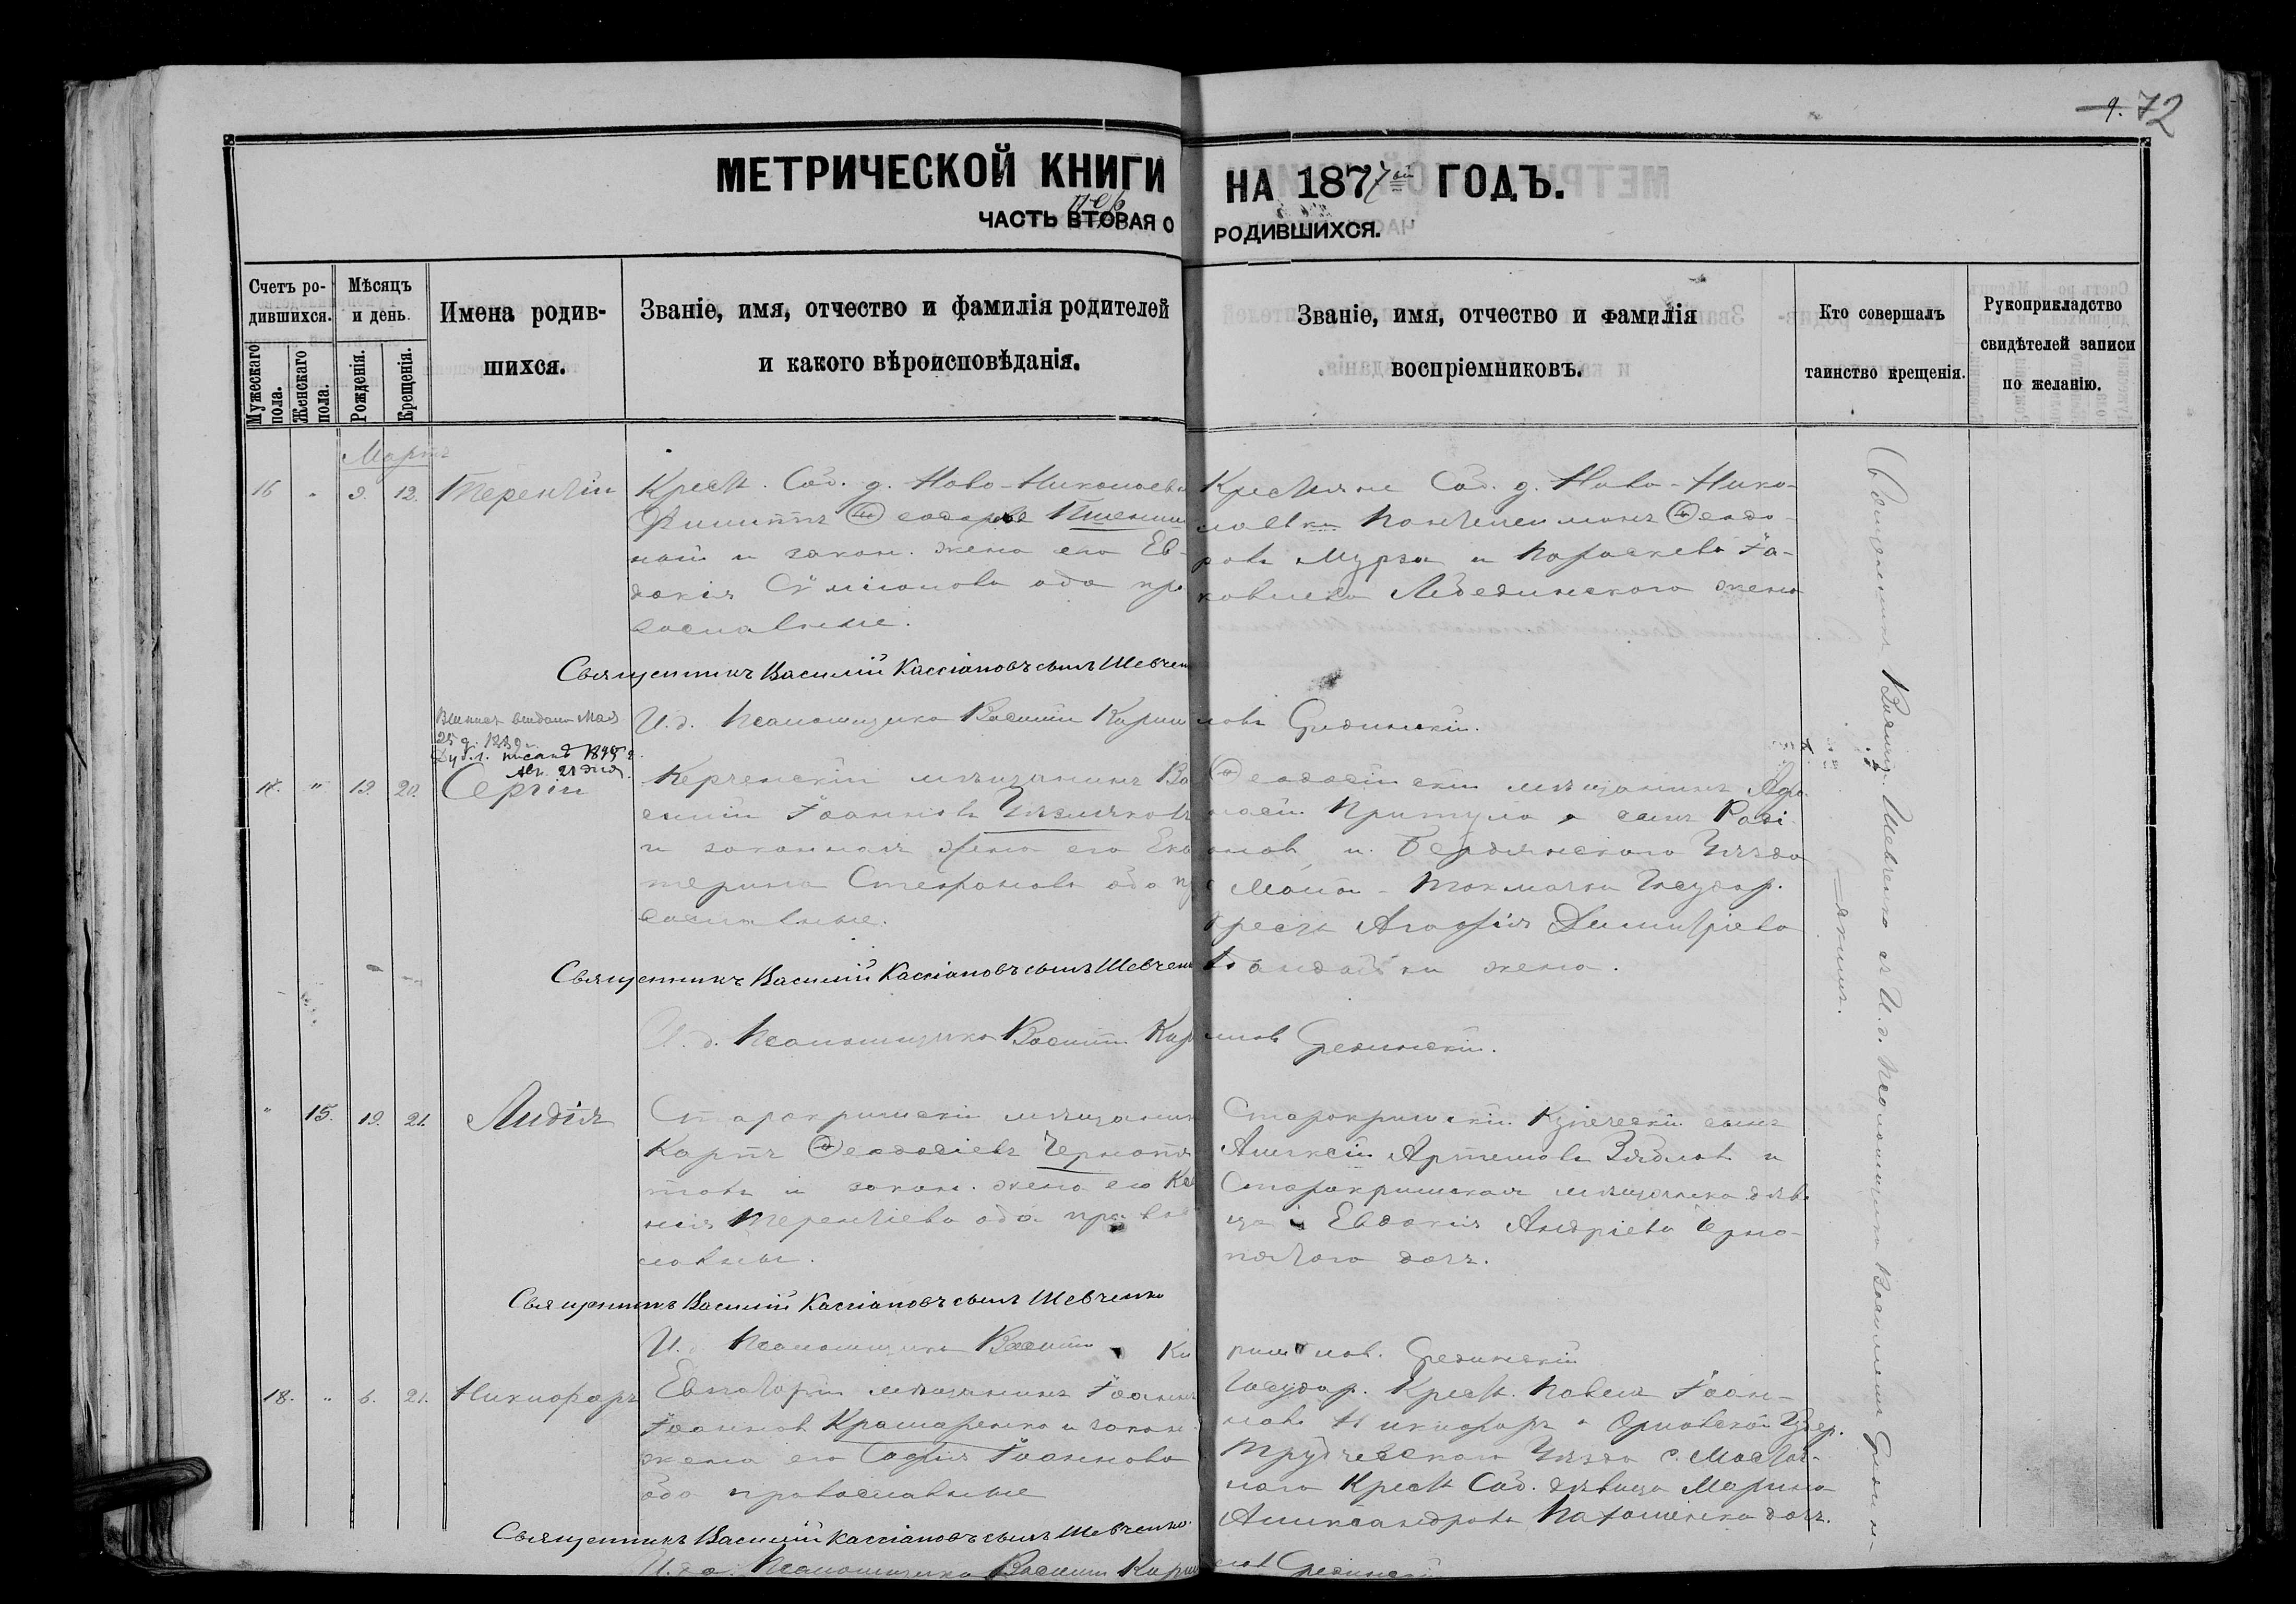 9. 72
МЕТРИЧЕСКОЙ КНИГИ НА 1877ой ГОДЪ.
пер
ЧАСТЬ ВТОРАЯ О РОДИВШИХСЯ.
Счетъ родившихся.
Мужескаго пола.
Женскаго пола.
Мѣсяцъ и день.
Рожденія.
Крещенія.
Имена родив-
шихся.
Званіе, имя, отчество и фамилія родителей
и какого вѣроисповѣданія.
Званіе, имя, отчество и фамилія
воспріемниковъ.
Кто совершалъ
таинство крещенія.
Рукоприкладство
свидѣтелей записи
по желанію.
Мартъ
16 " 9. 12. Терентій
Крест. Соб. д. Ново-Николаевки
Филиппъ Ѳеодоровъ Пшенич
ный и закон. жена его Ев-
докія Сѵміонова оба пра
вославные.
Крестьяне Соб. д. Ново-Нико-
лаевки Пантелеимонъ Ѳеодо-
ровъ Мурза и Параскева Іа-
ковлева Лебединскаго жена
Священникъ Василій Кассіановъ сынъ Шевченко
И. д. Псаломщика Василій Кирилловъ Грединскій.
Выпись выдана Мая
25 д. 1889 г.
Дубл. писанъ 1895 г.
Авг. 21 дня.
17. " 19. 20. Сергій
Керченскій мѣщанинъ Ва
силій Іоанновъ
и законная жена его Ека
терина Стефанова оба пра
вославные.
Ѳеодосійскій мѣщанинъ Аѳа-
насій Притула сынъ
и Бердянскаго Уѣзда
Малой-Токмачки Государ.
крест. Агафія Димитріева
жена.
Священникъ Василій Кассіановъ сынъ Шевченко
И. д. Псаломщика Василій Кирилловъ Грединскій.
" 15. 19. 21. Лидія
Старокрымскій мѣщанинъ
Карпъ Ѳеодосіевъ Чернопя
товъ и закон. жена его Ксе
нія Терентіева оба право
славные.
Старокрымскій Купеческій сынъ
Алексій Артемовъ Зябловъ и
Старокрымская мѣщанка дѣви
ца Евдокія Андріева Черно-
пятого дочь.
Священникъ Василій Кассіановъ сынъ Шевченко
И. д. Псаломщика Василій Кирилловъ Грединскій
18. " 6. 21. Никифоръ
Евпаторій мѣщанинъ Іоаннъ
Іоанновъ Крамаренко и закон.
жена его Софія Іоаннова
оба православные
Государ. Крест. Павелъ Іоан-
новъ Никифоръ и Орловской Губер.
Трубчевскаго Уѣзда с.
Крест. Соб. дѣвица Марина
Александрова дочь.
Священникъ Василій Кассіановъ сынъ Шевченко
И. д. Псаломщика Василій Кирилловъ Грединскій
Священникъ Василій Шевченко съ И. д. Псаломщика Василіемъ Гредин-
скимъ.